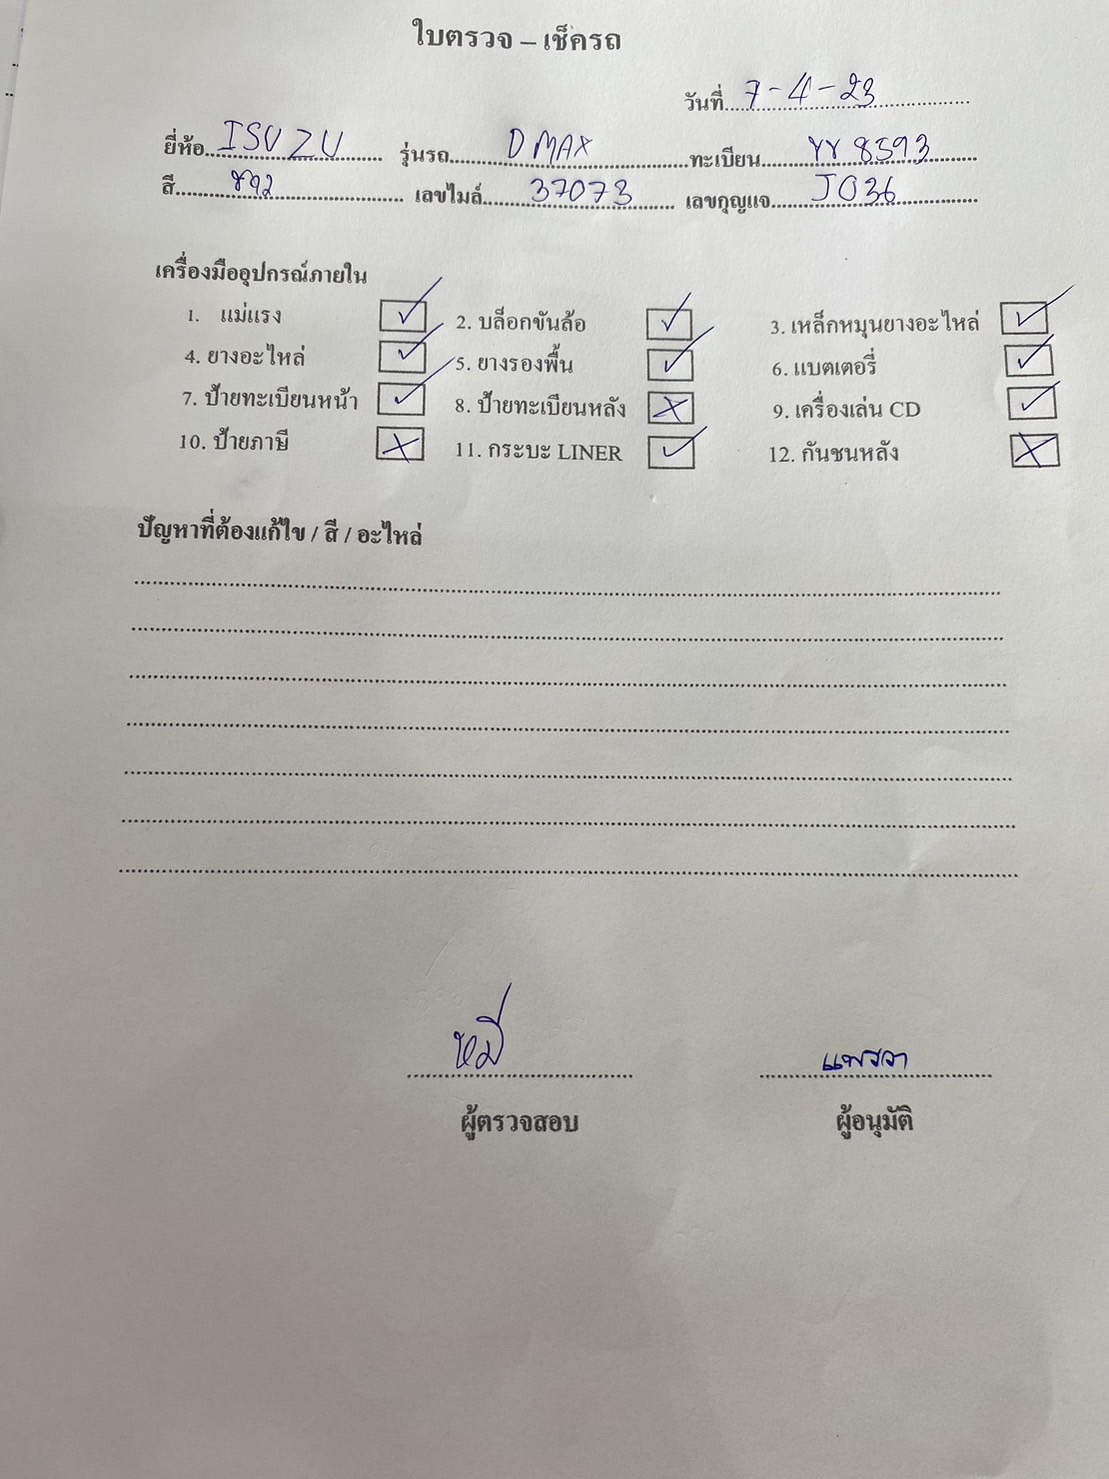 ใบตรวจ – เช็ครถ
วันที่ 7-4-23
ยี่ห้อ ISUZU รุ่นรถ D MAX ทะเบียน ฆฆ 8593
สี ขาว เลขไมล์ 37073 เลขกุญแจ J036
เครื่องมืออุปกรณ์ภายใน
1. แม่แรง ✓ 2. บล็อกขันล้อ ✓ 3. เหล็กหมุนยางอะไหล่ ✓
4. ยางอะไหล่ ✓ 5. ยางรองพื้น ✓ 6. แบตเตอรี่ ✓
7. ป้ายทะเบียนหน้า ✓ 8. ป้ายทะเบียนหลัง ✗ 9. เครื่องเล่น CD ✓
10. ป้ายภาษี ✗ 11. กระบะ LINER ✓ 12. กันชนหลัง ✗
ปัญหาที่ต้องแก้ไข / สี / อะไหล่
หมี แพรวา
ผู้ตรวจสอบ ผู้อนุมัติ